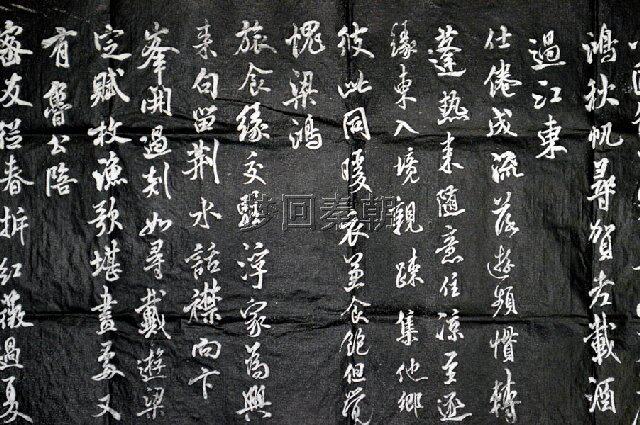 鴻秋帆尋賀老載酒
過江東
仕倦成流落遊頻慣轉
蓬熱來隨意住涼至逐
緣東入境親疎集他鄉
彼此同暖衣兼食飽但覺
愧梁鴻
旅食緣交駐浮家為興
来句留荆水話襟向卞
峯開過剡如尋戴遊梁
定賦枚漁歌堪畫處又
有魯公陪
密友從春拆紅薇過夏
梦回秦朝